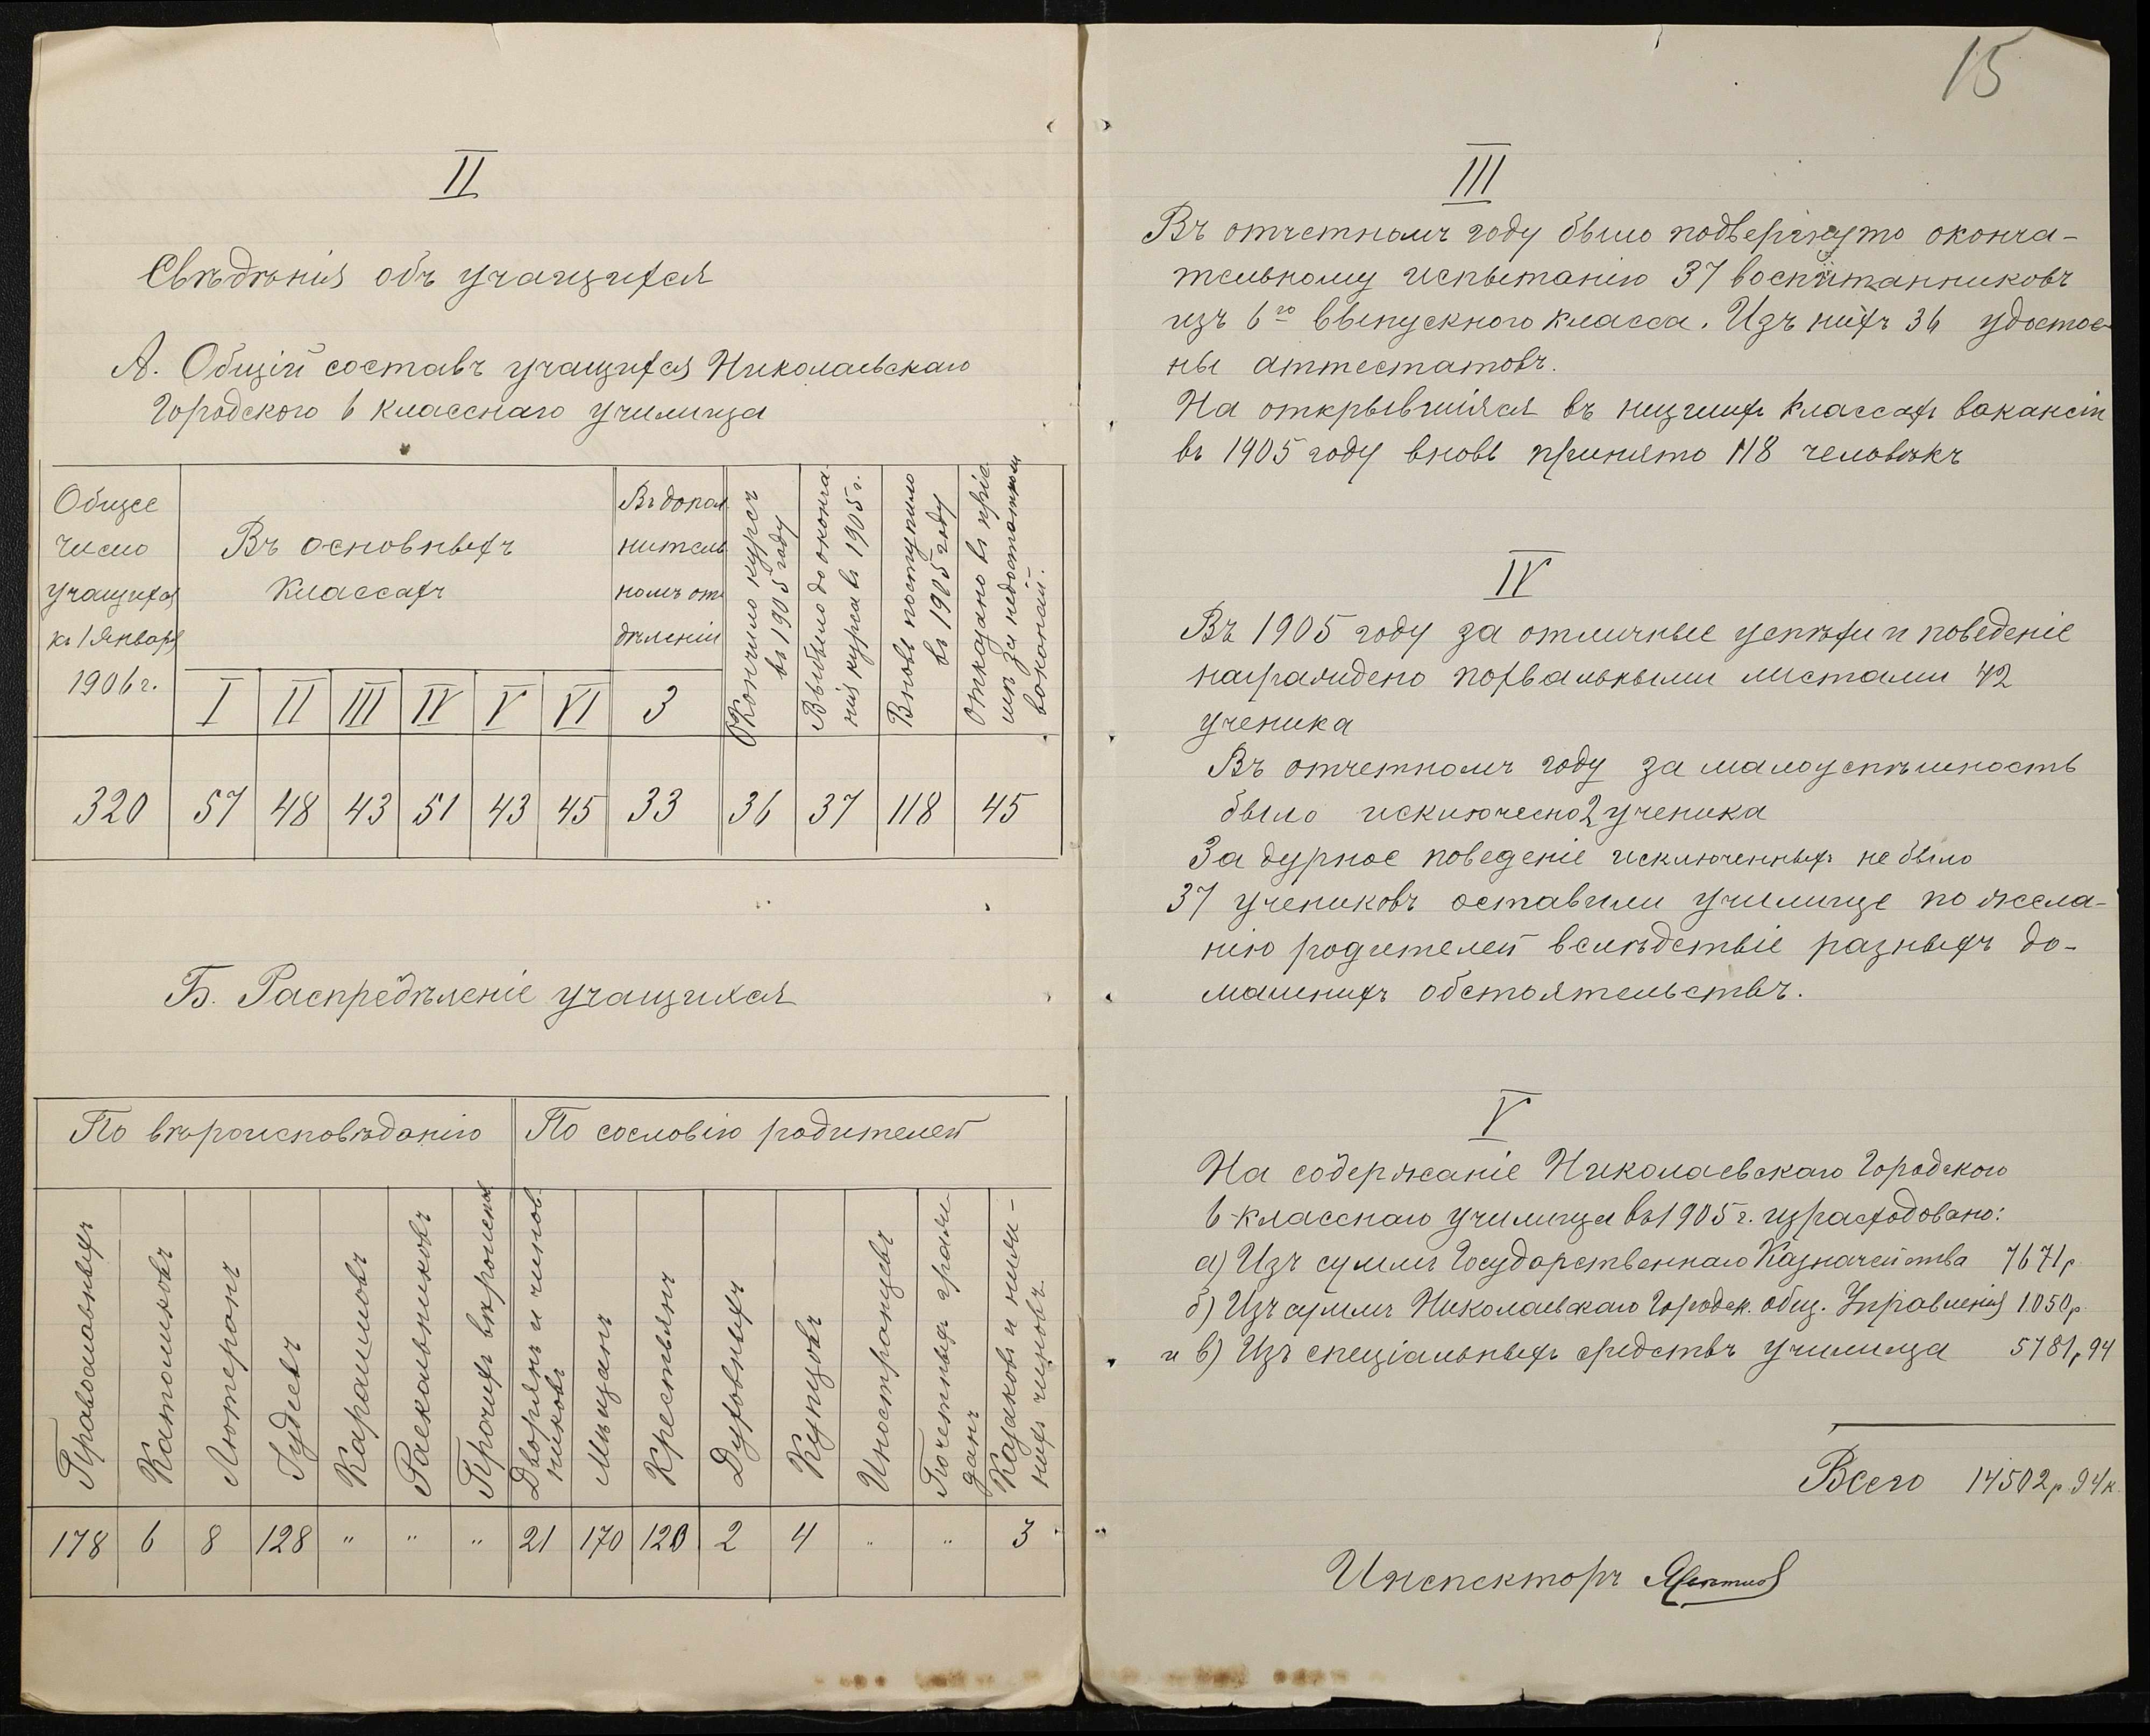 II
Свѣдѣнія объ учащихся
А. Общій составъ учащихся Николаевскаго
Городского 6 класснаго училища
Общее число учащихся къ 1 Января 1906 г.
Въ основныхъ классахъ
Въ дополнительномъ отдѣленіи
Окончило курсъ въ 1905 году
Выбыло до окончанія курса въ 1905 г.
Вновь поступило въ 1905 году
Отказано въ пріемѣ за недостаткомъ вакансій.
I II III IV V VI 3
320 57 48 43 51 43 45 33 36 37 118 45
Б. Распредѣленіе учащихся
По вѣроисповѣданію По сословію родителей
Православныхъ
Католиковъ
Лютеранъ
Іудеевъ
Караимовъ
Раскольниковъ
Прочихъ
Дворянъ и чиновниковъ
Мѣщанъ
Крестьянъ
Духовныхъ
Купцовъ
Иностранцевъ
Почетныхъ гражданъ
Казаковъ и нижнихъ чиновъ.
178 6 8 128 " " " 21 170 120 2 4 " " 3
15
III
Въ отчетномъ году было подвергнуто оконча-
тельному испытанію 37 воспитанниковъ
изъ 6го выпускного класса. Изъ нихъ 36 удостое-
ны аттестатовъ.
На открывшіяся въ низшихъ классахъ вакансіи
въ 1905 году вновь принято 118 человѣкъ
IV
Въ 1905 году за отличные успѣхи и поведеніе
награждено похвальными листами 42
ученика
Въ отчетномъ году за малоуспѣшность
было исключено 2 ученика
За дурное поведеніе исключенныхъ не было
37 учениковъ оставили училище по жела-
нію родителей вслѣдствіе разныхъ до-
машнихъ обстоятельствъ.
V
На содержаніе Николаевскаго Городского
6-класснаго училища въ 1905 г. израсходовано:
а) Изъ суммъ Государственнаго Казначейства 7671 р
б) Изъ суммъ Николаевскаго Городск. общ. Управленія 1050 р.
и в) Изъ спеціальныхъ средствъ училища 5781 р 94
Всего 14502 р. 94 к.
Инспекторъ